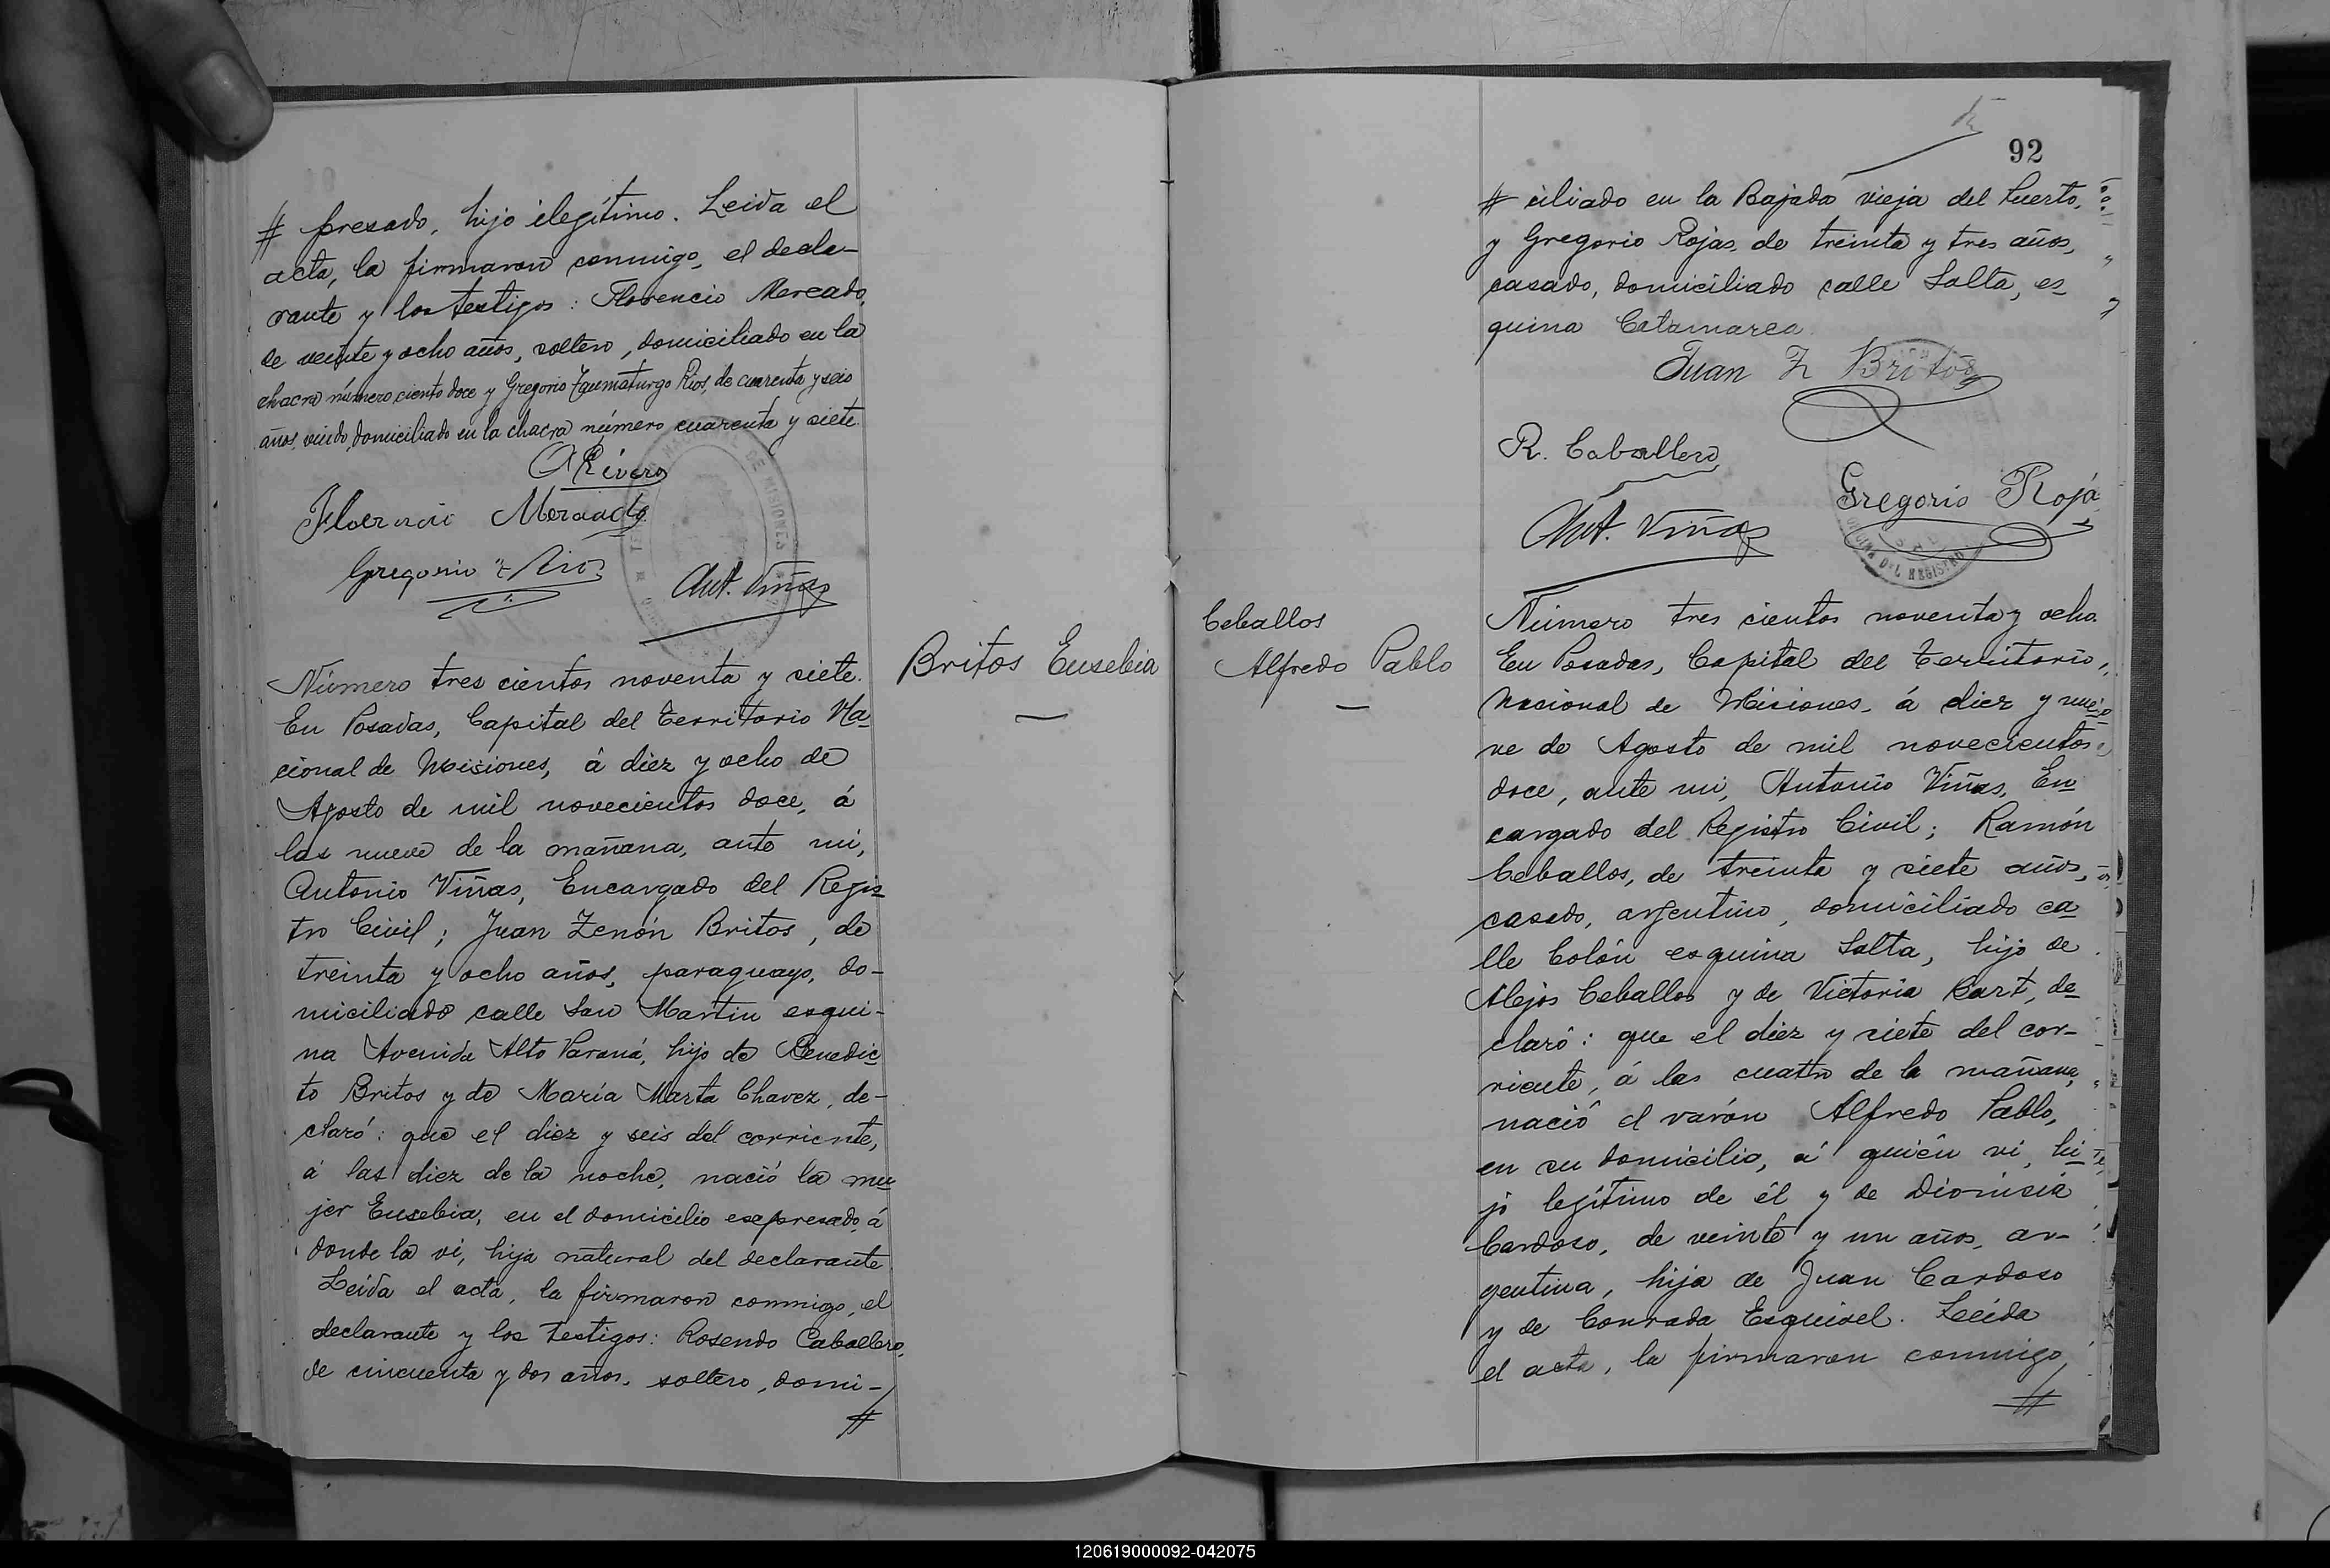 # presado, hijo ilegítimo. Leida el
acta, la firmaron conmigo, el decla-
rante y los testigos: Florencio Mercado,
de veinte y ocho años, soltero, domiciliado en la
chacra número ciento doce y Gregorio Taumaturgo Rios, de cuarenta y seis
años, viudo, domiciliado en la chacra número cuarenta y siete.
Rivero
Mercado
Gregorio T Rios
Ant. Viñas
Número tres cientos noventa y siete.
En Posadas, Capital del Territorio Na
cional de Misiones, á diez y ocho de
Agosto de mil novecientos doce, á
las nueve de la mañana, ante mi,
Antonio Viñas, Encargado del Regis
tro Civil; Juan Zenón Britos, de
treinta y ocho años, paraguayo, do-
miciliado calle San Martin esqui-
na Avenida Alto Paraná, hijo de Benedic
to Britos y de María Marta Chavez, de-
claró: que el diez y seis del corriente,
á las diez de la noche, nació la mu
jer Eusebia, en el domicilio esepresado, á
donde la vi, hija natural del declarante.
Leida el acta, la firmaron conmigo, el
declarante y los testigos: Rosendo Caballero,
de cincuenta y dos años, soltero, domi-
#
Britos Eusebia
92
# ciliado en la Bajada vieja del Puerto,
y Gregorio Rojas, de treinta y tres años,
casado, domiciliado calle Salta, es
quina Catamarca.
Juan Z Britos
R. Caballero
Gregorio Roja
Ant. Viñas
OFICINA DEL REGISTRO
Ceballos
Alfredo Pablo
Número tres cientos noventa y ocho.
En Posadas, Capital del Territorio,
Nacional de Misiones, á diez y nue
ve de Agosto de mil novecientos
doce, ante mi, Antonio Viñas, En
cargado del Registro Civil; Ramón
Ceballos, de treinta y siete años,
casado, argentino, domiciliado ca
lle Colón esquina Salta, hijo de
Alejos Ceballos y de Victoria Bart, de
claró: que el diez y siete del cor-
riente, á las cuatro de la mañana,
nació el varón Alfredo Pablo,
en su domicilio, á quién vi, hi
jo legítimo de él y de Dionisia
Cardoso, de veinte y un años, ar-
gentina, hija de Juan Cardoso
y de Conrada Esquivel. Leida
el acta, la firmaron conmigo,
#
120619000092-042075